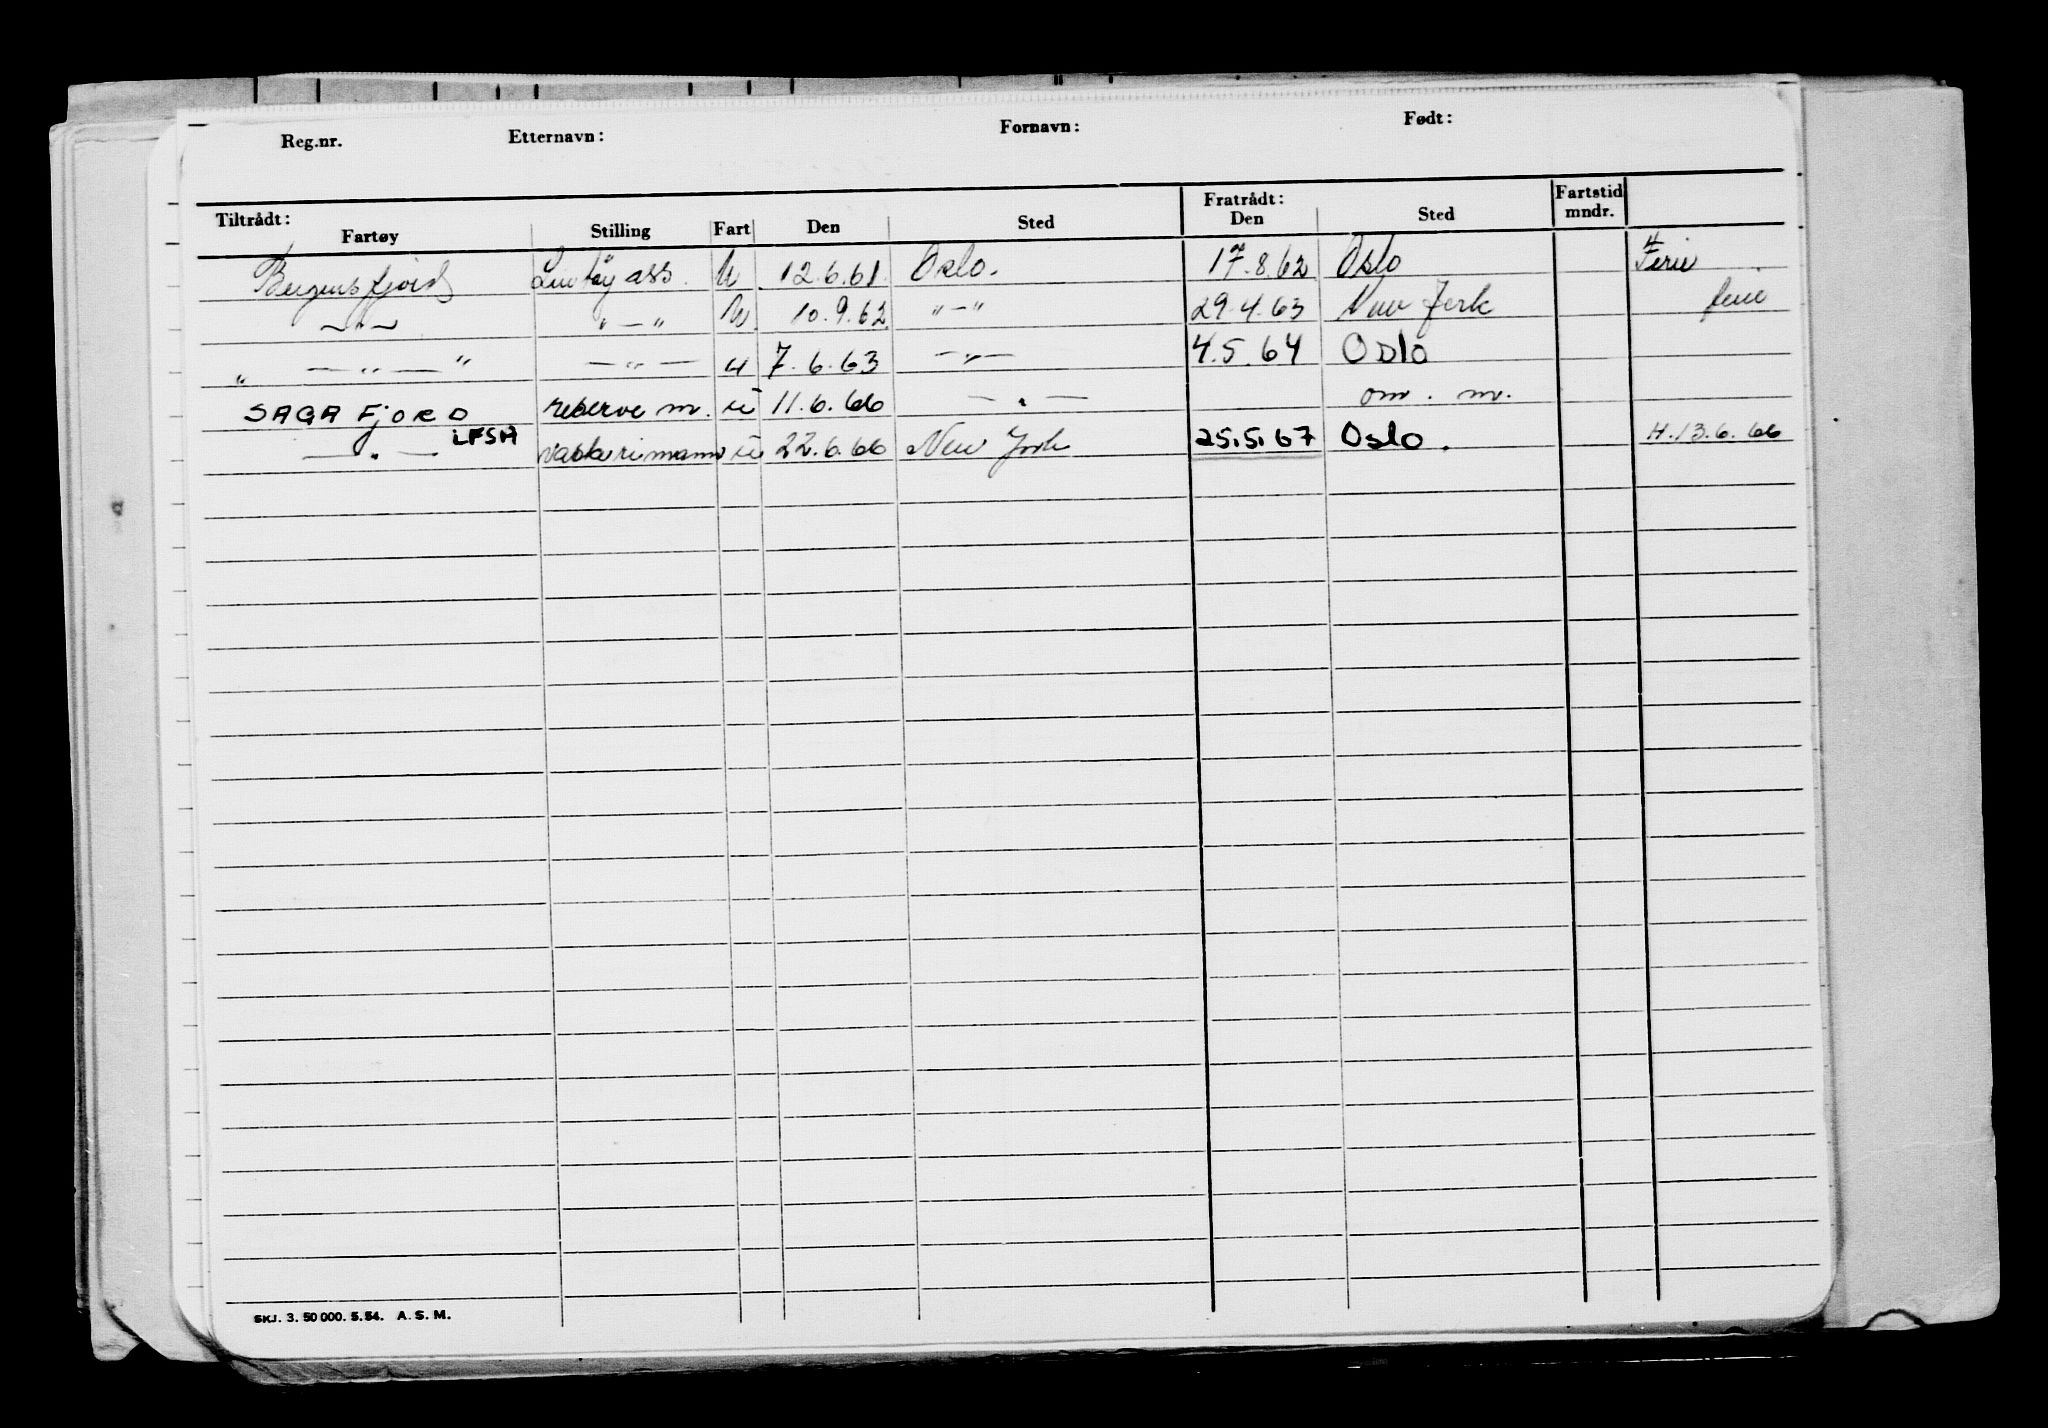 Reg.nr. Etternavn: Fornavn: Født:
Tiltrådt: Fratrådt: Fartstid
Fartøy Stilling Fart Den Sted Den Sted mndr.
Bergensfjord Lintøy ass. U 12.6.61. Oslo. 17.8.62 Oslo Ferie
—"— "—" U 10.9.62 "—" 29.4.63 New Jork ferie
" —"— " —"— u 7.6.63 —"— 4.5.64 Oslo
SAGAFJORD reserve m. u 11.6.66 —"— om. m.
—"— LFSH vaskerimann u 22.6.66 New York 25.5.67 Oslo. H.13.6.66
SKJ. 3. 50 000. 5.54. A. S. M.